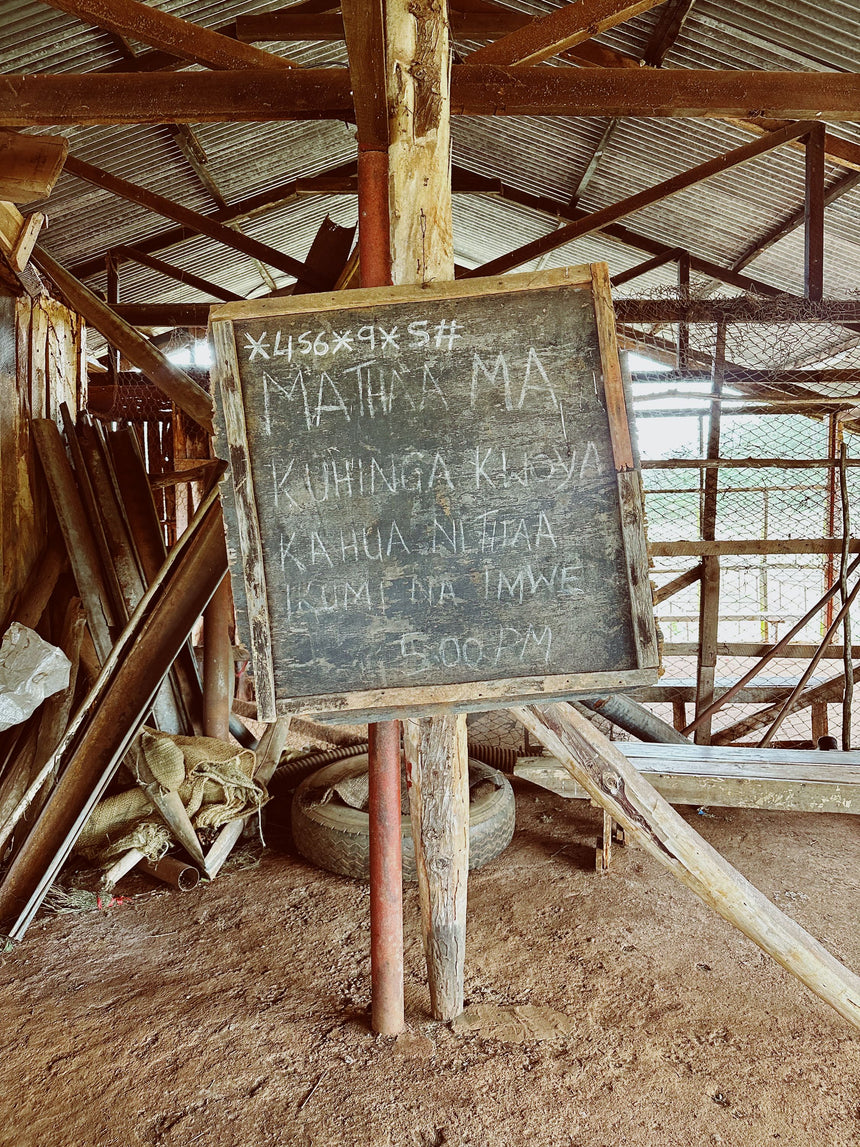 *456*9*5#
MATHAA MA
KUHINGA KWOYA
KAHUA NI THAA
IKUMI NA IMWE
5:00 PM